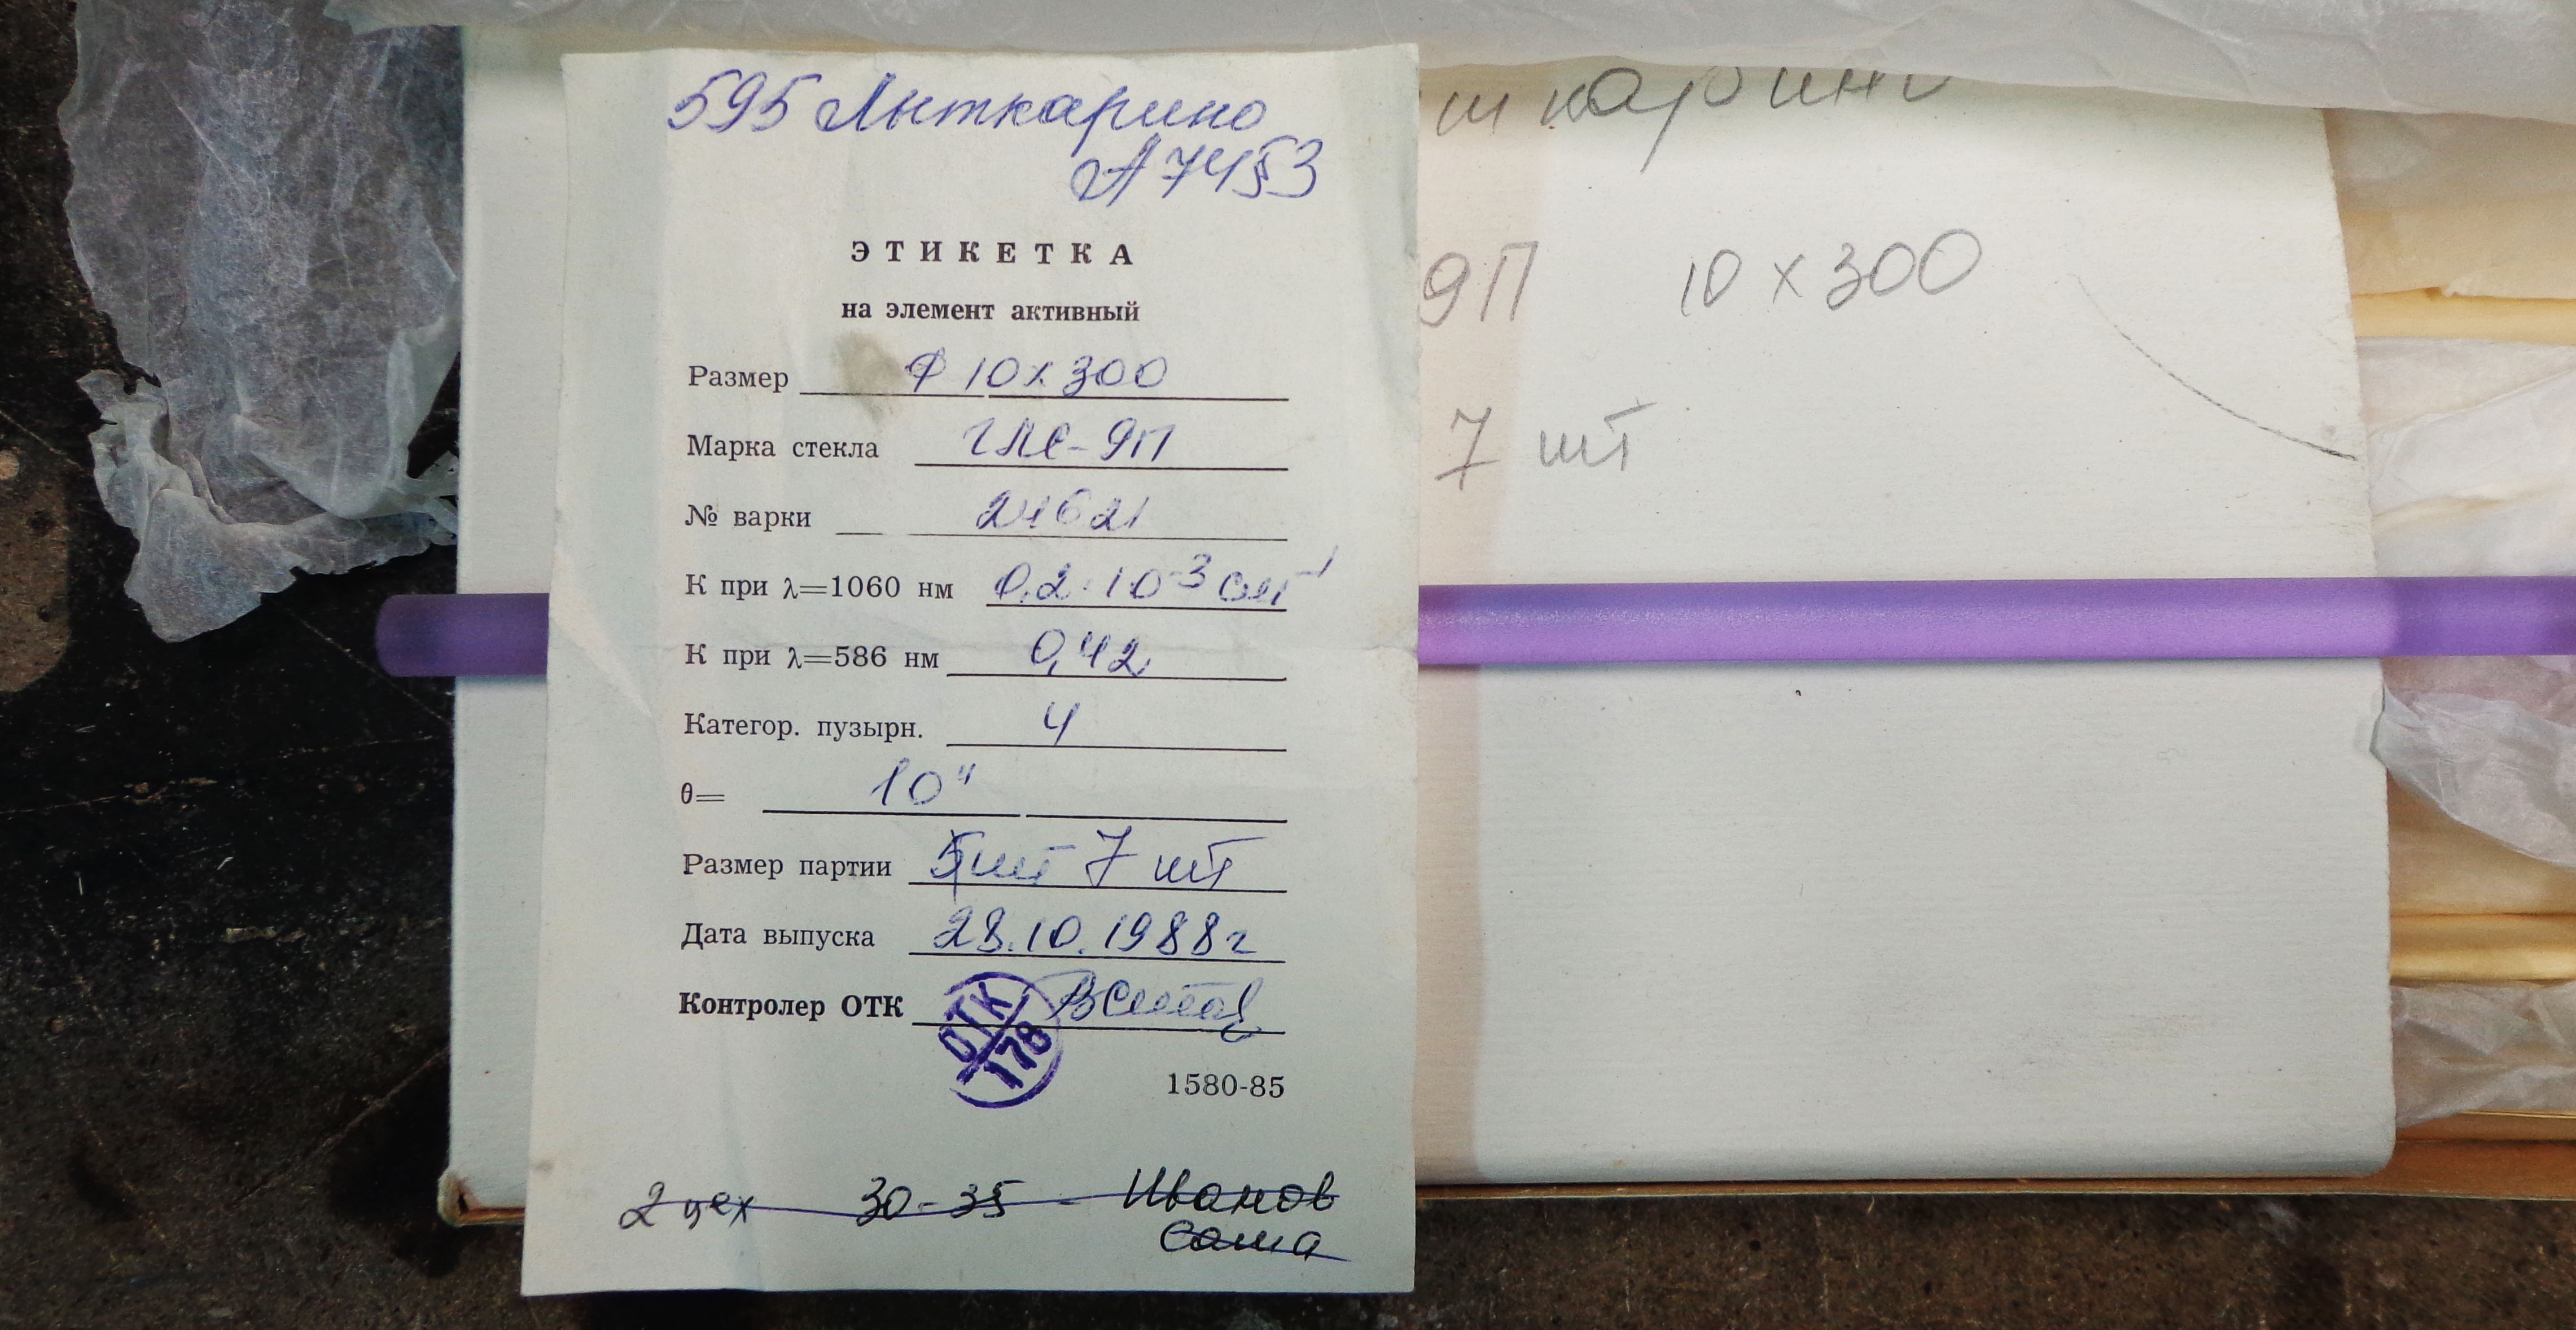 595 Лыткарино
А7453
ЭТИКЕТКА
на элемент активный
Размер Ф 10х300
Марка стекла ГЛС-9П
№ варки 24621
К при λ=1060 нм 0,2·10⁻³ см⁻¹
К при λ=586 нм 0,42
Категор. пузырн. 4
θ= 10"
Размер партии 5шт 7 шт
Дата выпуска 28.10.1988г
Контролер ОТК
ОТК
178
1580-85
2 цех 30-35 - Иванов
Саша
9П 10 х 300
7 шт